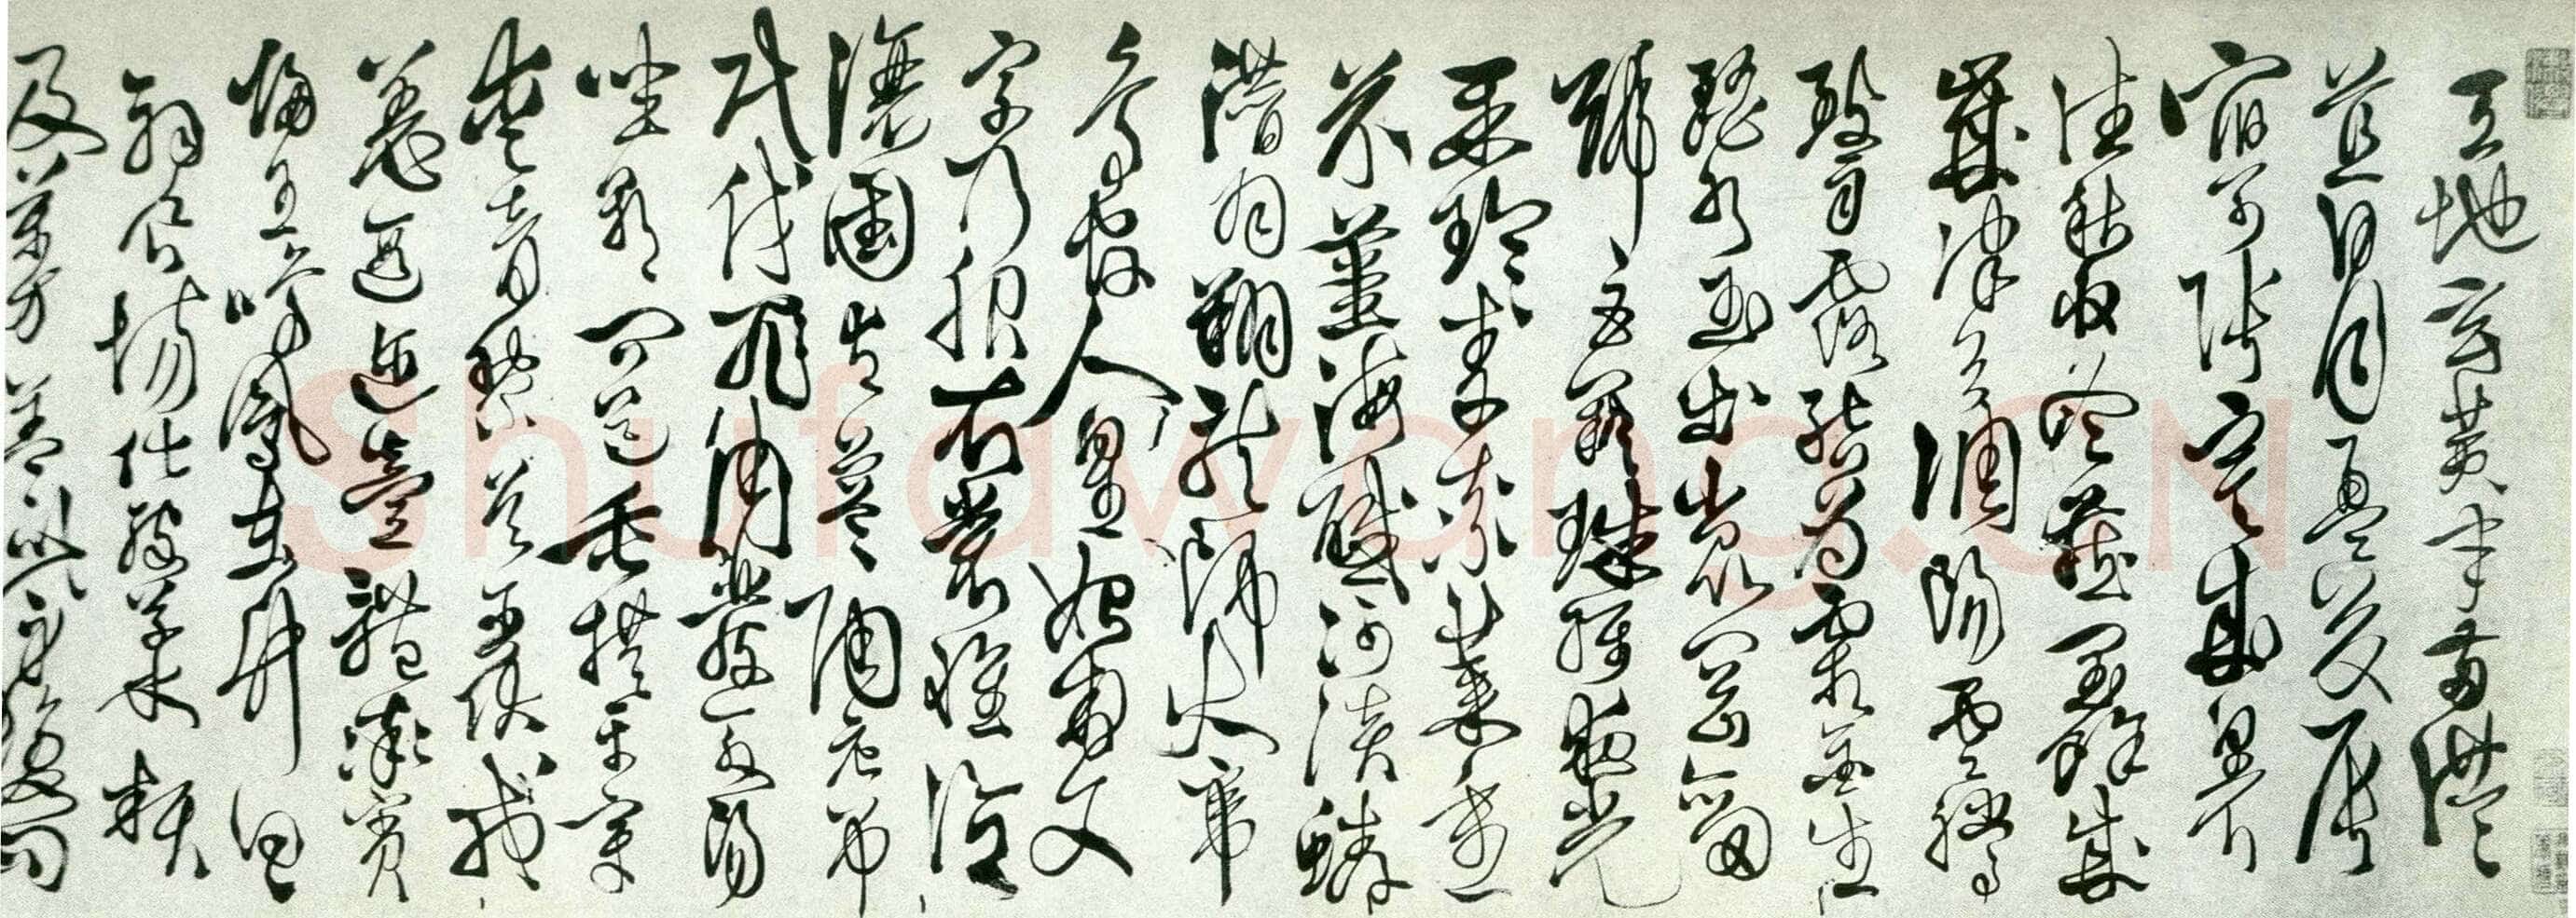 天地玄黃宇宙洪
荒日月盈昃辰
宿列張寒來暑
往秋收冬藏閏餘成
歲律呂調陽雲騰
致雨露結為霜金生
麗水玉出崑岡劍
號巨闕珠稱夜光
菓珍李柰菜重
芥薑海鹹河淡鱗
潛羽翔龍師火帝
鳥官人皇始制文
字乃服衣裳推位
讓國有虞陶唐弔
民伐罪周發殷湯
坐朝問道垂拱平章
愛育黎首臣伏戎
羌遐邇壹體率賓
歸王鳴鳳在竹白
駒食場化被草木賴
及萬方蓋此身髮四
Shufawang.CN